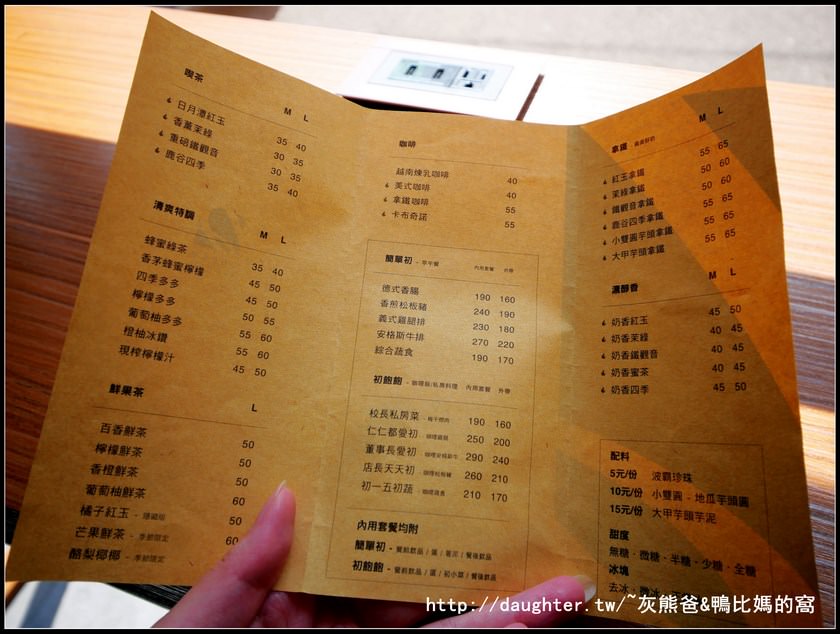 喫茶 M L
日月潭紅玉 35 40
香薰茉綠 30 35
重磅鐵觀音 30 35
鹿谷四季 35 40
清爽特調 M L
蜂蜜綠茶 35 40
香茅蜂蜜檸檬 45 50
四季多多 45 50
檸檬多多 50 55
葡萄柚多多 55 60
橙柚冰鑽 55 60
現榨檸檬汁 45 50
鮮果茶 L
百香鮮茶 50
檸檬鮮茶 50
香橙鮮茶 50
葡萄柚鮮茶 60
橘子紅玉 - 隱藏版 50
芒果鮮茶 - 季節限定 60
酪梨椰椰 - 季節限定
咖啡
越南煉乳咖啡 40
美式咖啡 40
拿鐵咖啡 55
卡布奇諾 55
簡單初 - 早午餐 內用套餐 外帶
德式香腸 190 160
香煎松板豬 240 190
義式雞腿排 230 180
安格斯牛排 270 220
綜合蔬食 190 170
初飽飽 - 咖哩飯/私房料理 內用套餐 外帶
校長私房菜 - 梅干燜肉 190 160
仁仁都愛初 - 咖哩雞腿 250 200
董事長愛初 - 咖哩安格斯牛 290 240
店長天天初 - 咖哩松板豬 260 210
初一五初蔬 - 咖哩蔬食 210 170
內用套餐均附
簡單初 - 餐前飲品 / 蛋 / 薯泥 / 餐後飲品
初飽飽 - 餐前飲品 / 蛋 / 初小菜 / 餐後飲品
拿鐵 M L
紅玉拿鐵 55 65
茉綠拿鐵 50 60
鐵觀音拿鐵 50 60
鹿谷四季拿鐵 55 65
小雙圓芋頭拿鐵 55 65
大甲芋頭拿鐵 55 65
濃醇香 M L
奶香紅玉 45 50
奶香茉綠 40 45
奶香鐵觀音 40 45
奶香蜜茶 40 45
奶香四季 45 50
配料
5元/份 波霸珍珠
10元/份 小雙圓 - 地瓜芋頭圓
15元/份 大甲芋頭芋泥
甜度
無糖 - 微糖 - 半糖 - 少糖 - 全糖
冰塊
去冰
http://daughter.tw/~灰熊爸&鴨比媽的窩